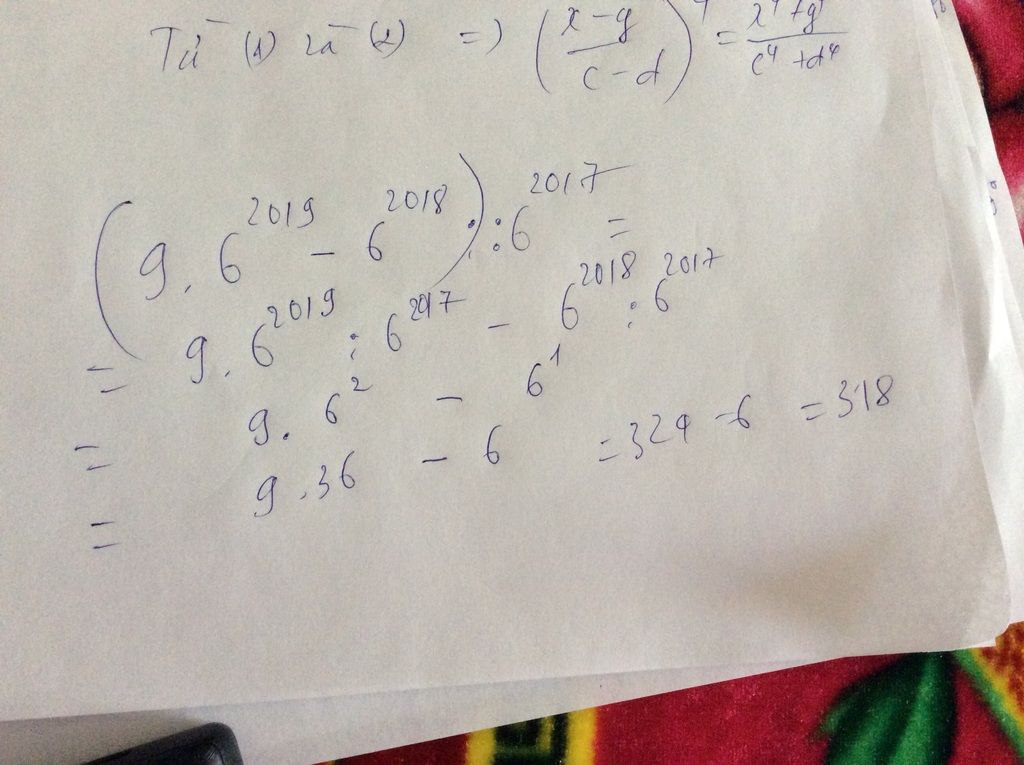 Từ (1) và (2) => ((x-y)/(c-d))⁴ = (x⁴+y⁴)/(c⁴+d⁴)
(9.6²⁰¹⁹ - 6²⁰¹⁸):6²⁰¹⁷ =
= 9.6²⁰¹⁹ : 6²⁰¹⁷ - 6²⁰¹⁸ : 6²⁰¹⁷
= 9.6² - 6¹
= 9.36 - 6 = 324 - 6 = 318